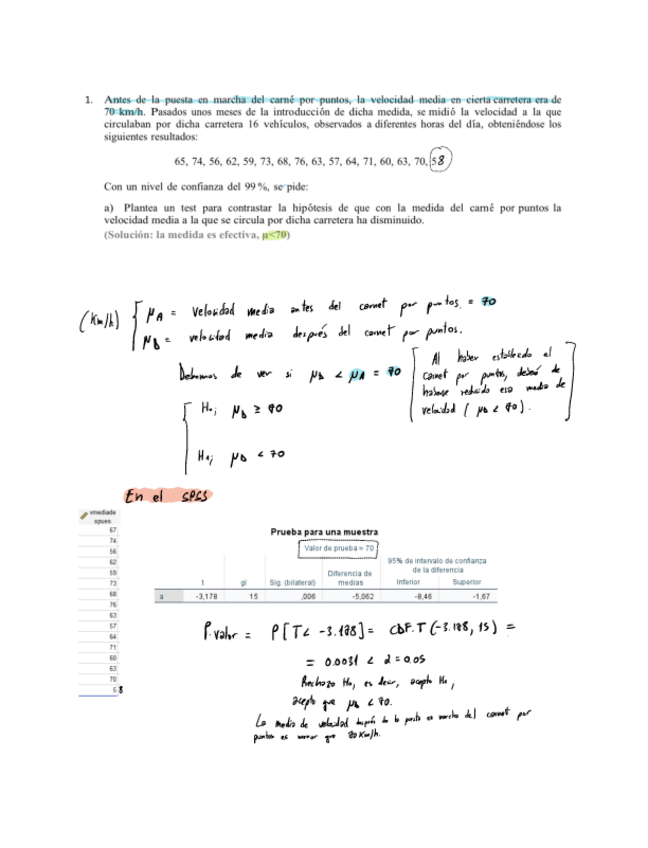 1. Antes de la puesta en marcha del carné por puntos, la velocidad media en cierta carretera era de
70 km/h. Pasados unos meses de la introducción de dicha medida, se midió la velocidad a la que
circulaban por dicha carretera 16 vehículos, observados a diferentes horas del día, obteniéndose los
siguientes resultados:
65, 74, 56, 62, 59, 73, 68, 76, 63, 57, 64, 71, 60, 63, 70, 58
Con un nivel de confianza del 99 %, se pide:
a) Plantea un test para contrastar la hipótesis de que con la medida del carné por puntos la
velocidad media a la que se circula por dicha carretera ha disminuido.
(Solución: la medida es efectiva, μ<70)
(Km/h) { μA = velocidad media antes del carnet por puntos = 70
μD = velocidad media después del carnet por puntos.
Debemos de ver si μD < μA = 70
[Al haber establecido el
carnet por puntos, deberá de
haberse reducido esa media de
velocidad (μD < 70).]
H₀; μD ≥ 70
H₁; μD < 70
En el SPSS
vmediade
spues
67
74
56
62
59
73
68
76
63
57
64
71
60
63
70
58
Prueba para una muestra
Valor de prueba = 70
95% de intervalo de confianza
de la diferencia
t gl Sig. (bilateral) Diferencia de medias Inferior Superior
a -3,178 15 ,006 -5,062 -8,46 -1,67
P.valor = P[T< -3.178] = CDF.T(-3.178, 15) =
= 0.0031 < α = 0.05
Rechazo H₀, es decir, acepto H₁,
acepto que μD < 70.
La media de velocidad después de la puesta en marcha del carnet por
puntos es menor que 70 Km/h.